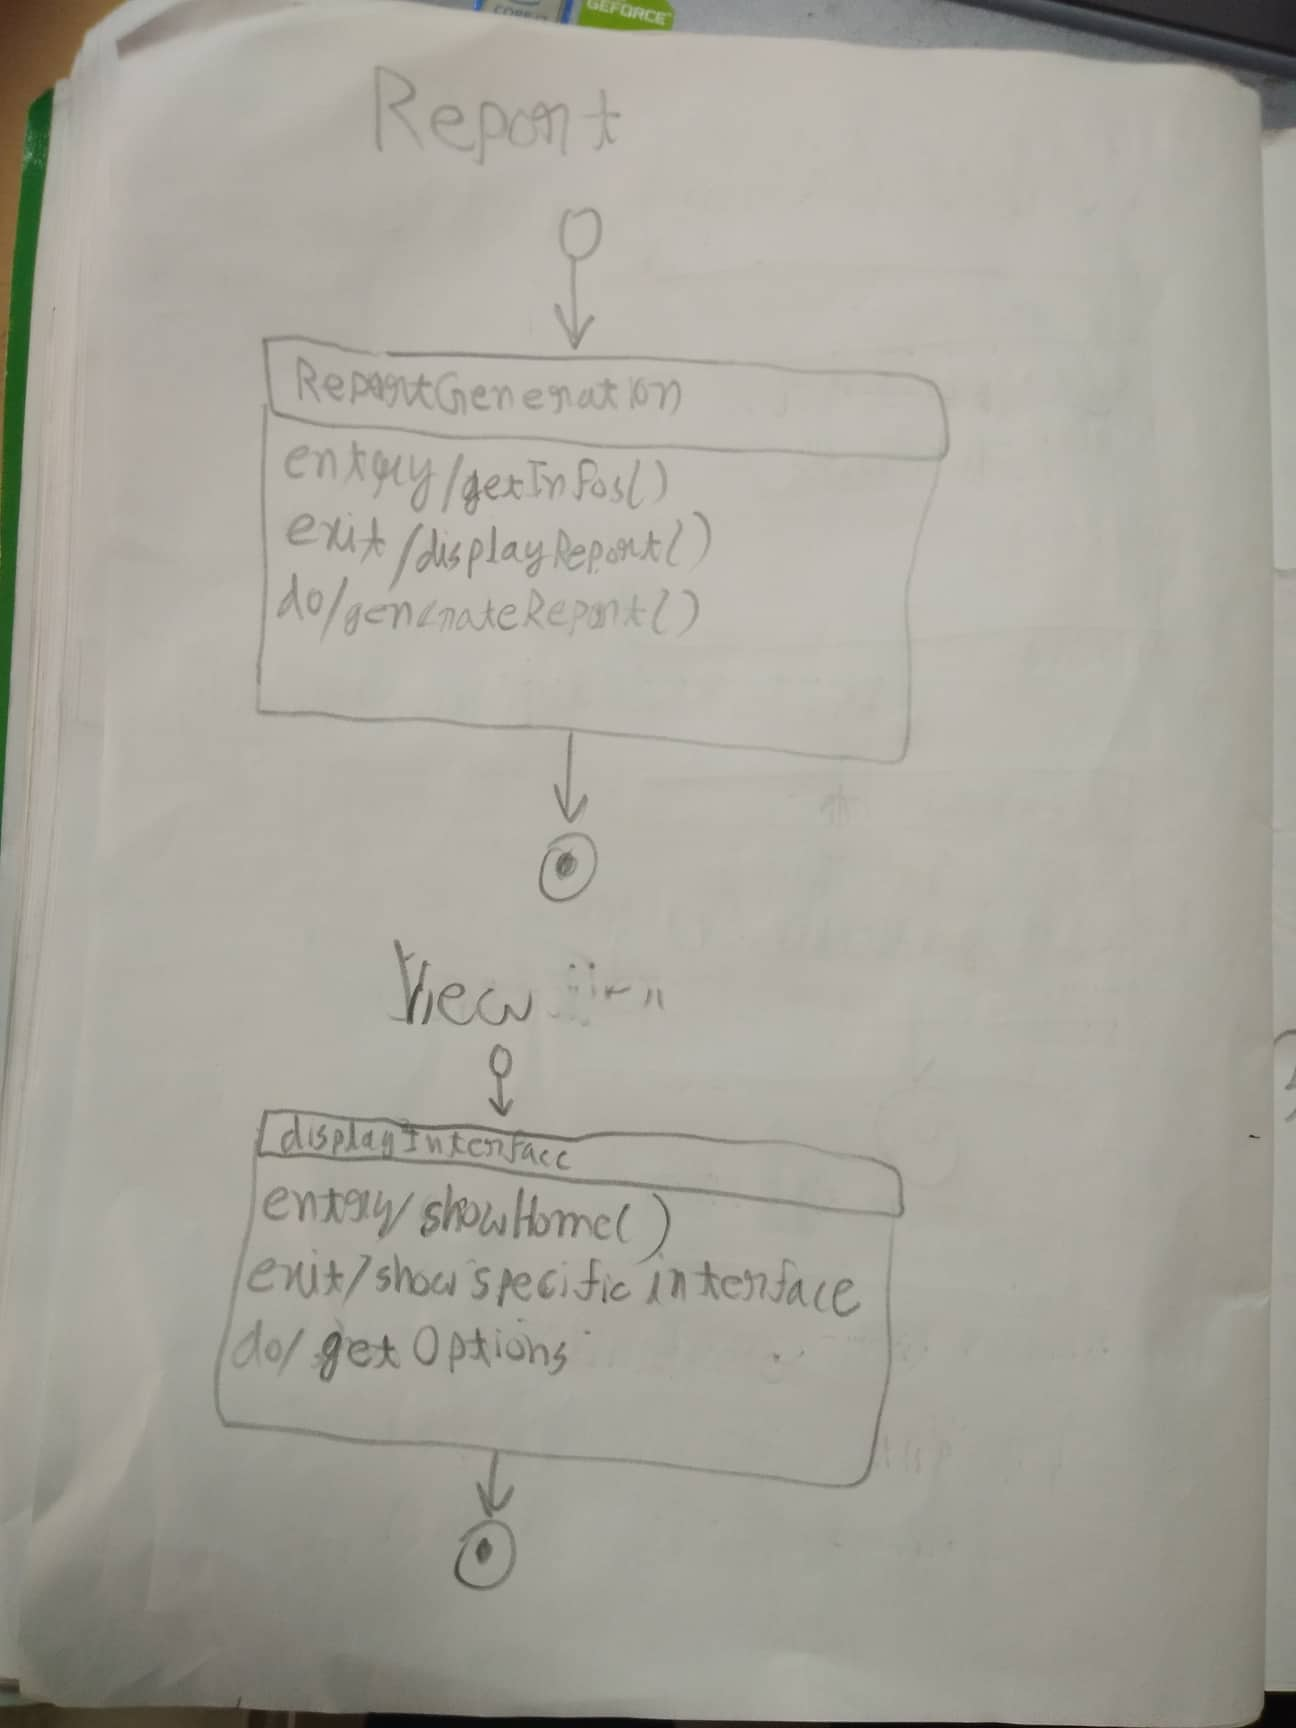 GEFORCE
Report
ReportGeneration
entry/getInfos()
exit/displayReport()
do/generateReport()
View
displayInterface
entry/showHome()
exit/show specific interface
do/get Options